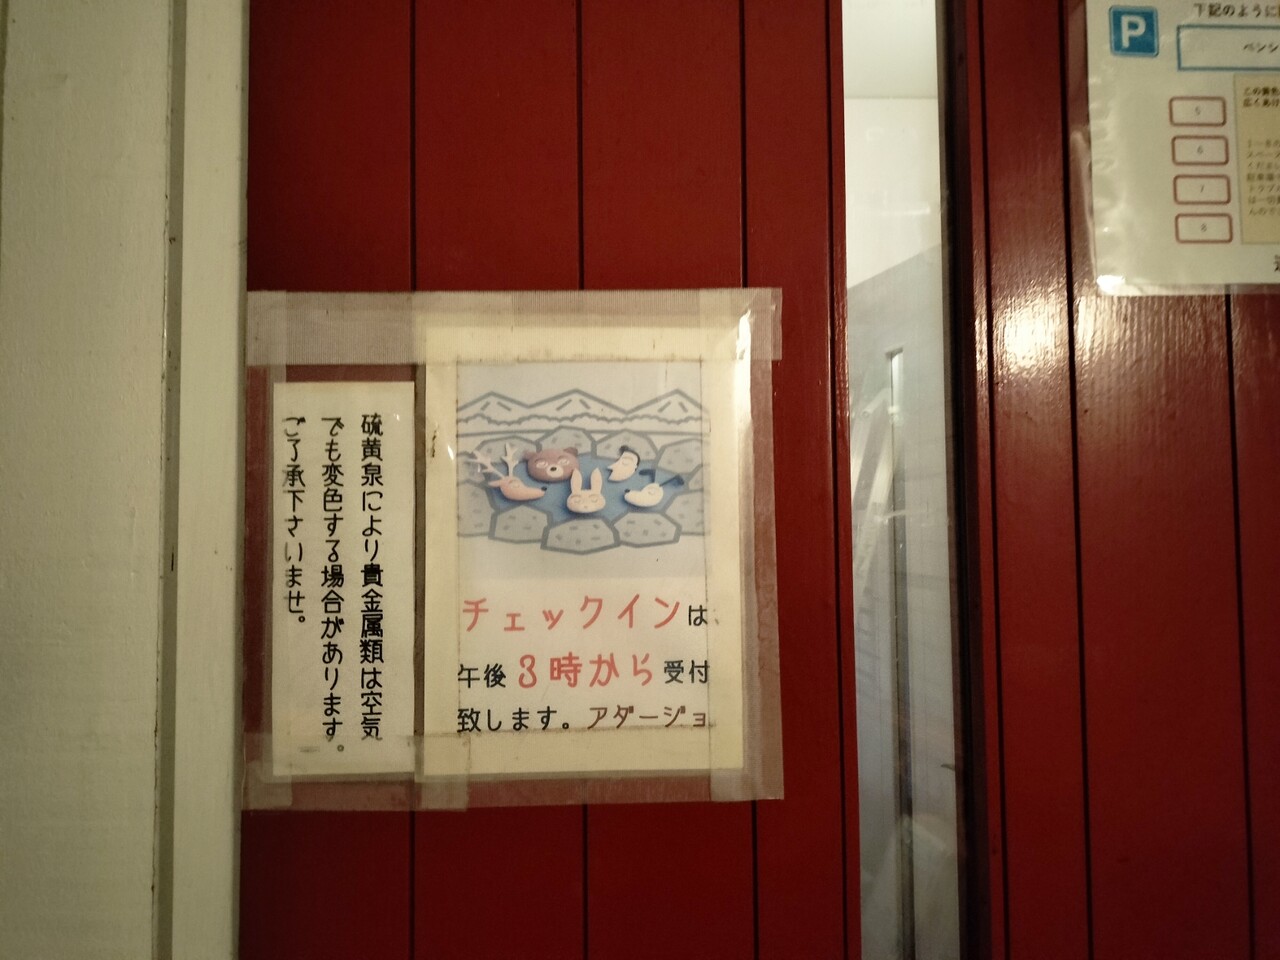 硫黄泉により貴金属類は空気
でも変色する場合があります。
ご了承下さいませ。
チェックインは、
午後3時から受付
致します。アダージョ
P
下記のように
ペンシ
5
6
7
8
広くあけ